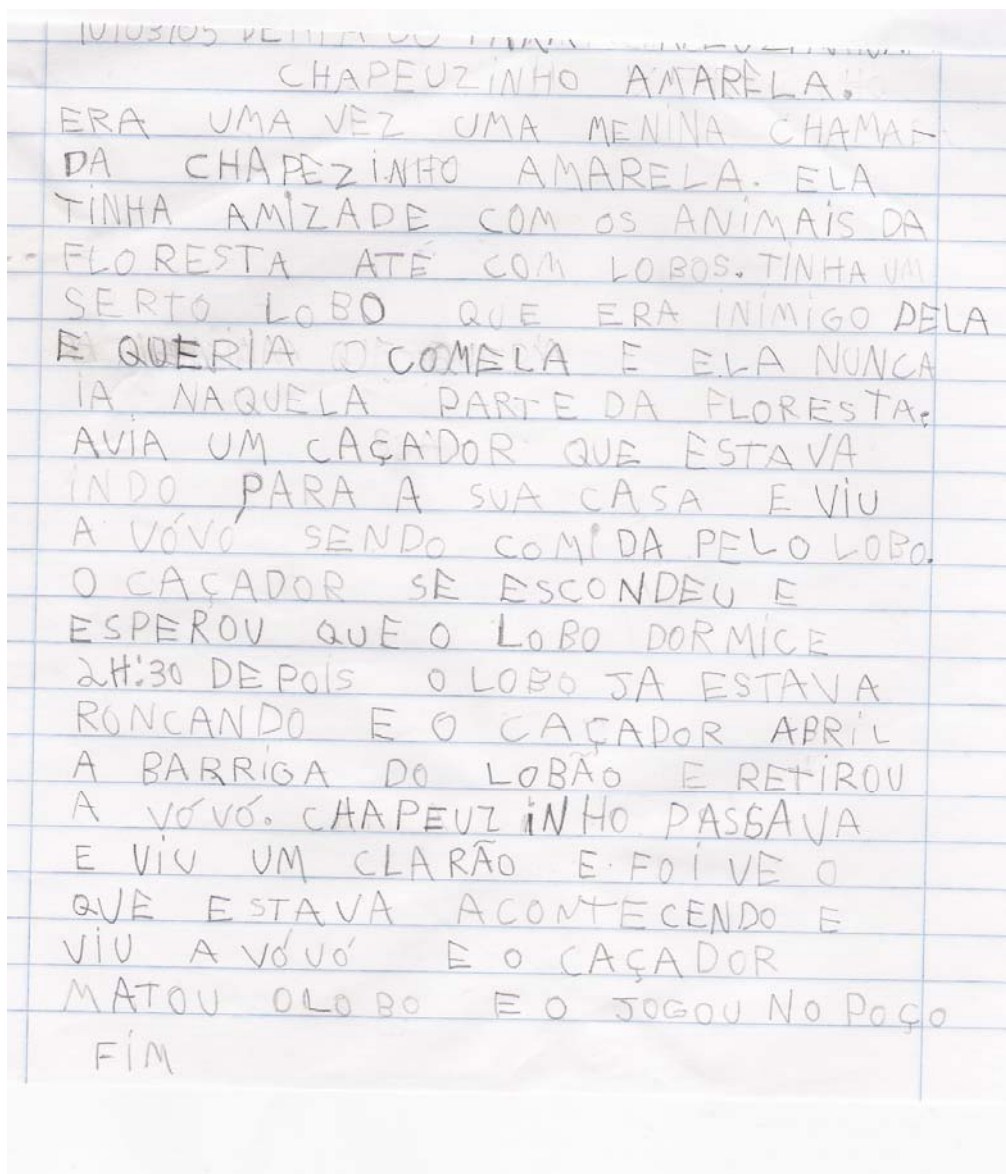 CHAPEUZINHO AMARÉLA.
ERA UMA VEZ UMA MENINA CHAMA-
DA CHAPEZINHO AMARELA. ELA
TINHA AMIZADE COM OS ANIMAIS DA
FLORESTA ATÉ COM LOBOS. TINHA UM
SERTO LOBO QUE ERA INIMIGO DELA
E QUERIA COMELA E ELA NUNCA
IA NAQUELA PARTE DA FLORESTA.
AVIA UM CAÇADOR QUE ESTAVA
INDO PARA A SUA CASA E VIU
A VÓVÓ SENDO COMIDA PELO LOBO.
O CAÇADOR SE ESCONDEU E
ESPEROU QUE O LOBO DORMICE
2H:30 DEPOIS O LOBO JA ESTAVA
RONCANDO E O CAÇADOR ABRIL
A BARRIGA DO LOBÃO E RETIROU
A VÓVÓ. CHAPEUZINHO PASSAVA
E VIU UM CLARÃO E FOI VE O
QUE ESTAVA ACONTECENDO E
VIU A VÓVÓ E O CAÇADOR
MATOU OLOBO E O JOGOU NO POÇO
FIM